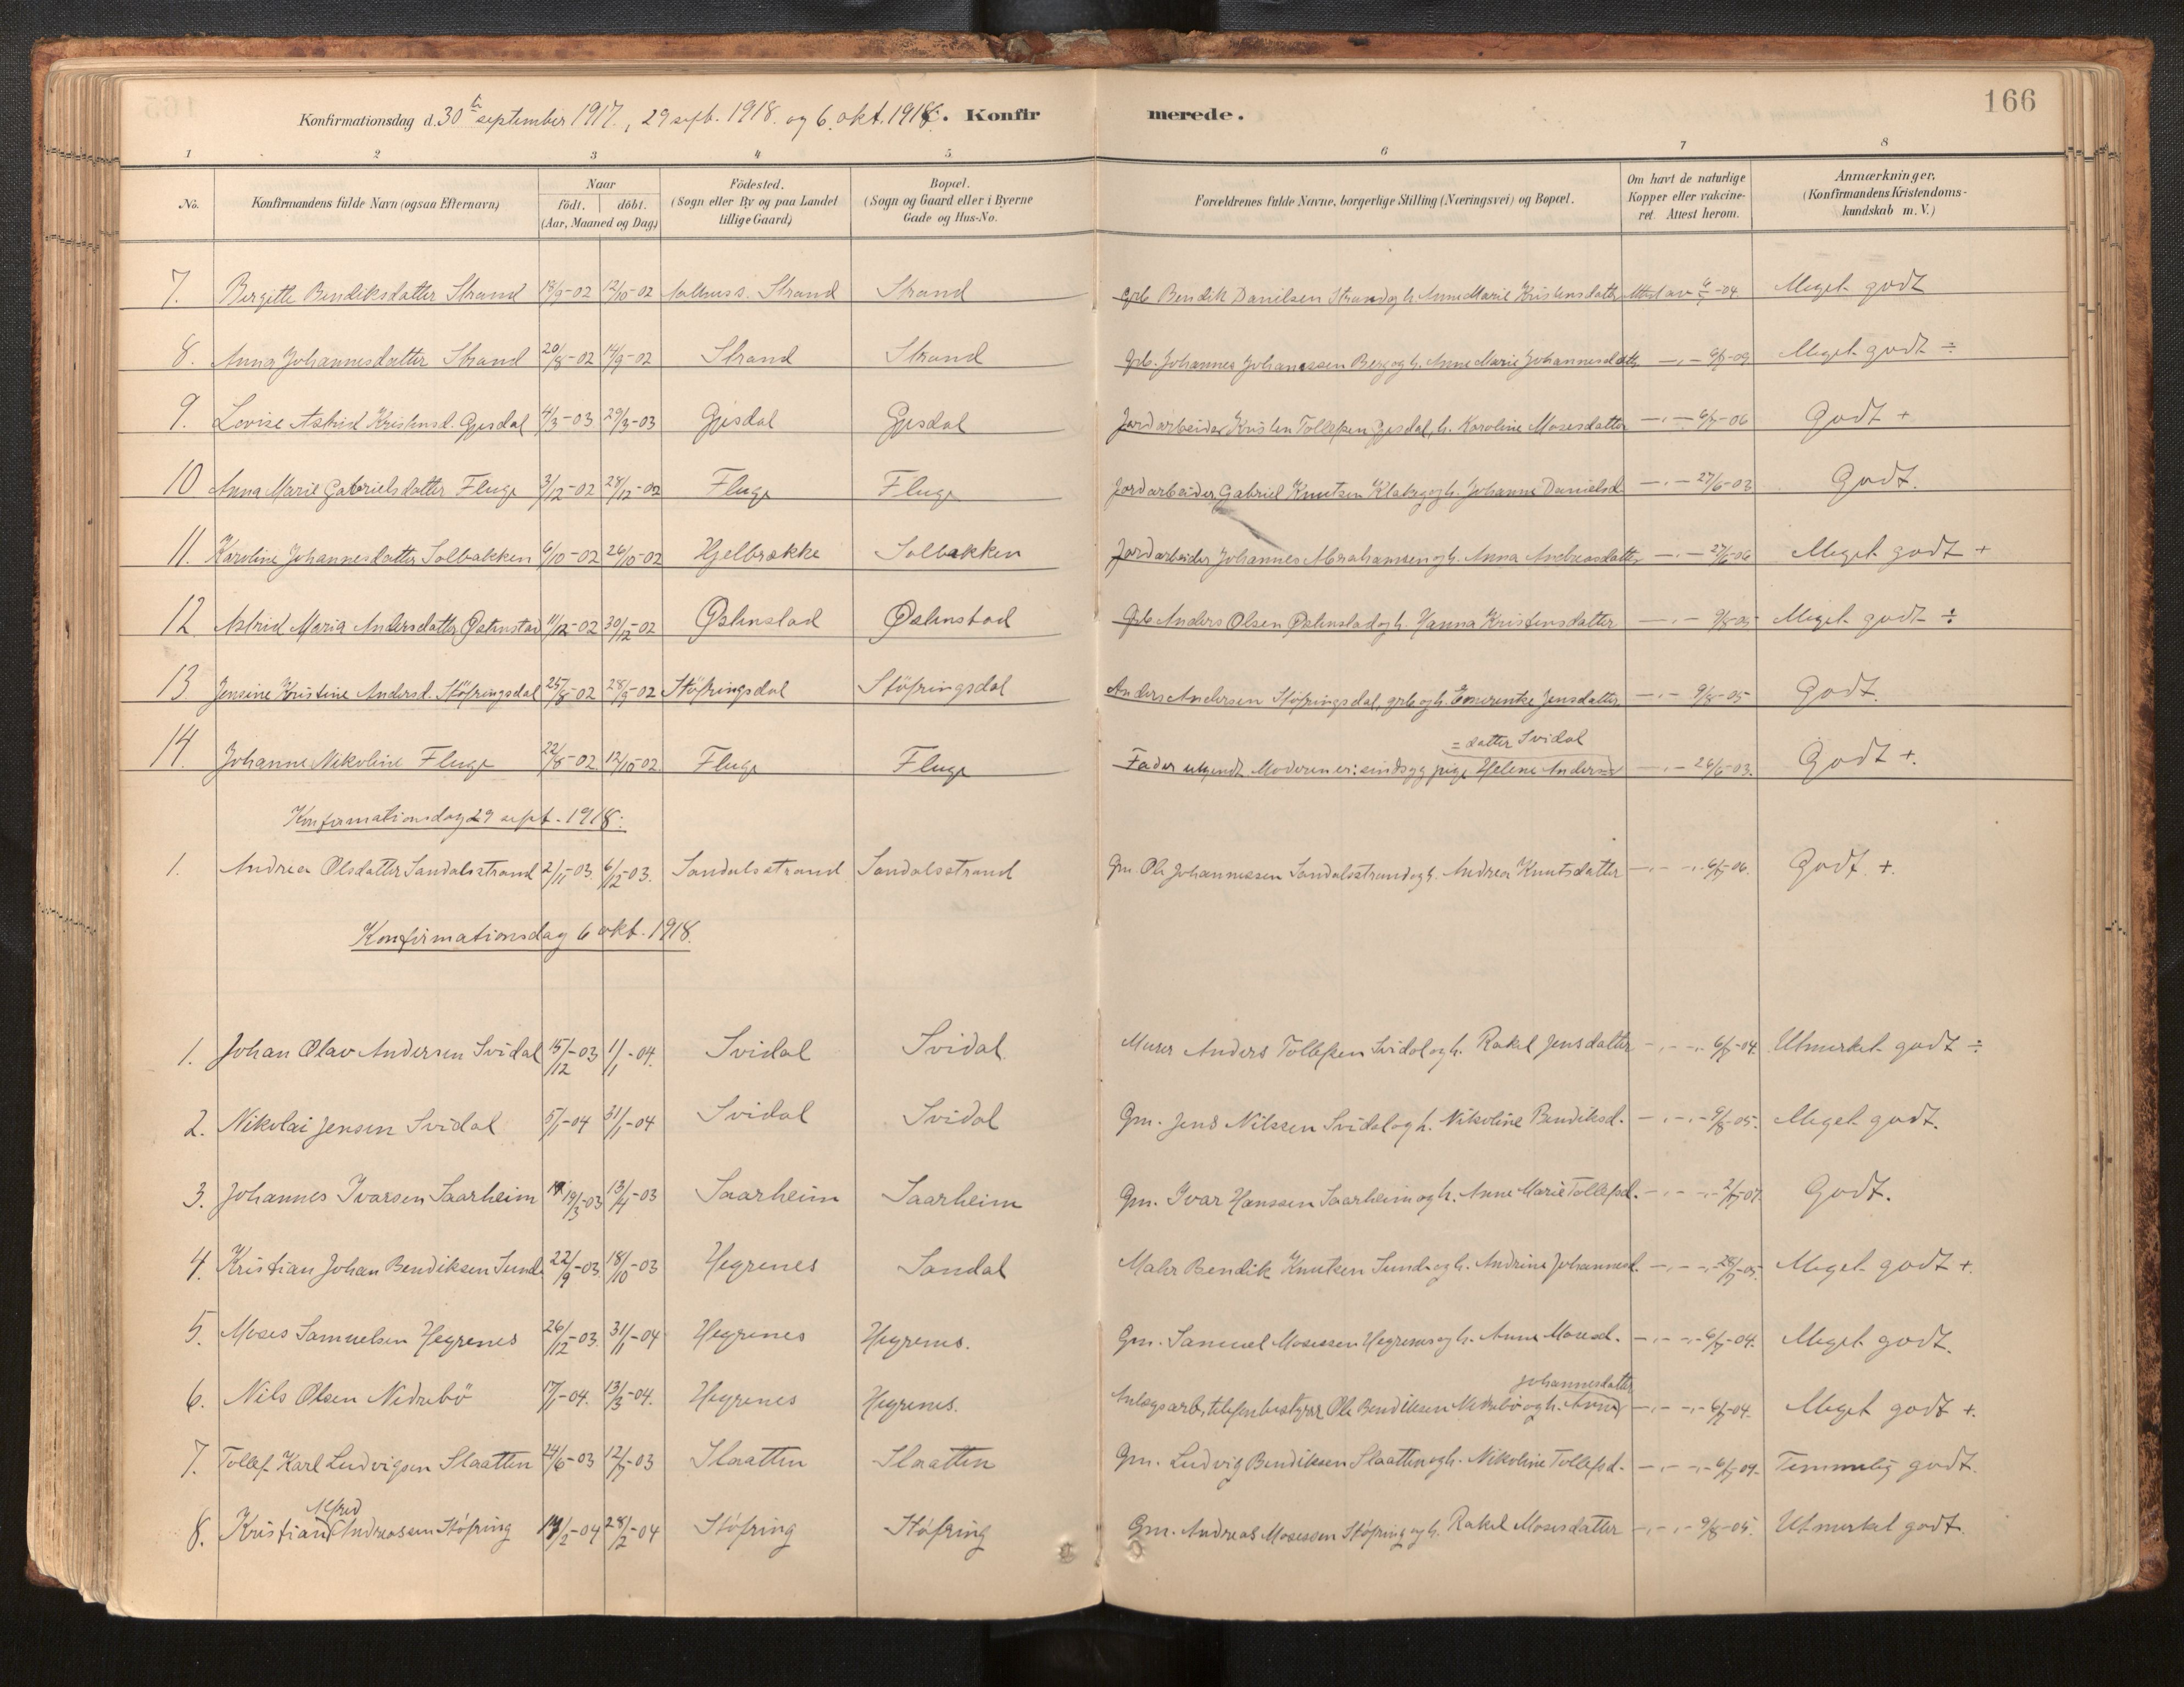 166
Konfirmationsdag d. 30te september 1917., 29 sept. 1918. og 6. okt. 1918. Konfirmerede.
1 2 3 4 5 6 7 8
No.
Konfirmandens fulde Navn (ogsaa Efternavn)
Naar
födt. döbt.
(Aar, Maaned og Dag)
Födested.
(Sogn eller By og paa Landet
tillige Gaard)
Bopæl.
(Sogn og Gaard eller i Byerne
Gade og Hus-No.
Forældrenes fulde Navne, borgerlige Stilling (Næringsvei) og Bopæl.
Om havt de naturlige
Kopper eller vakcine-
ret. Attest herom.
Anmærkninger.
(Konfirmandens Kristendoms-
kundskab m. V.)
7. Bergitte Bendiksdatter Strand 18/9-02 12/10-02 Strand Strand Grb. Bendik Danielsen Strand og h. Anne Marie Kristensdatter Attest av -04. Meget godt
8. Anna Johannesdatter Strand 20/8-02 14/9-02 Strand Strand Grb. Johannes Johannessen Berg og h. Anne Marie Johannesdatter Meget godt ÷
9. Lovise Astrid Kristensd. Gjesdal 4/3-03 29/3-03 Gjesdal Gjesdal Jordarbeider Kristen Tollefsen Gjesdal, h. Karoline Mosesdatter -06 Godt +
10 Anna Marie Gabrielsdatter Fluge 3/12-02 28/12-02 Fluge Fluge Jordarbeider Gabriel Knutsen og h. Johanne Danielsd. 27/6-03 Godt.
11. Karoline Johannesdatter Solbakken 6/10-02 26/10-02 Hjelbrække Solbakken Jordarbeider Johannes Abrahamsen og h. Anna Andreasdatter 27/6-06 Meget godt +
12 Astrid Maria Andersdatter Østenstad 11/12-02 30/12-02 Østenstad Østenstad Grb Anders Olsen Østenstad og h. Hanna Kristensdatter 9/8-05 Meget godt ÷
13 Jensine Kristine Andersd. Støfringsdal 25/8-02 28/9-02 Støfringsdal Støfringsdal Anders Andersen Støfringsdal, grb og h. Emerentse Jensdatter 9/8-05 Godt.
= datter Svidal
14. Johanne Nikoline Fluge 22/8-02 12/10-02 Fluge Fluge Fader ukjendt Moderen er: sindsyg pige Helene Anders= 26/6-03. Godt +.
Konfirmationsdag 29 sept. 1918:
1. Andrea Olsdatter Sandalsstrand 2/11-03. 6/12-03. Sandalsstrand Sandalsstrand Gm. Ole Johannessen Sandalsstrand og h. Andrea Knutsdatter -06. Godt +.
Konfirmationsdag 6 okt. 1918.
1. Johan Olav Andersen Svidal 15/12-03 1/1-04. Svidal Svidal. Murer Anders Tollefsen Svidal og h. Rakel Jensdatter -04. Utmerket godt ÷
2. Nikolai Jensen Svidal 5/1-04 31/1-04 Svidal Svidal Gm. Jens Nilssen Svidal og h. Nikoline Bendiksd. 9/8-05. Meget godt.
3. Johannes Ivarsen Saarheim 19/3-03 13/4-03 Saarheim Saarheim Gm. Ivar Hanssen Saarheim og h. Anne Marie Tollefsd. Godt.
4. Kristian Johan Bendiksen Sunde 22/9-03. 18/10-03 Hegrenes Sandal Maler Bendik Knutsen Sunde og h. Andrine Johannesd. Meget godt +.
5. Moses Samuelsen Hegrenes 26/12-03. 31/1-04 Hegrenes Hegrenes. Gm. Samuel Mosessen Hegrenes og h. Anne Mosesd. -04. Meget godt.
johannesdatter
6. Nils Olsen Nedrebö 17/1-04. 13/3-04. Hegrenes Hegrenes. Anlægsarb., telefonbestyrer Ole Bendiksen Nedrebö og h. Anna -04. Meget godt +.
7. Tollef Karl Ludvigsen Slaatten 24/6-03 12/7-03 Slaatten Slaatten Gm. Ludvig Bendiksen Slaatten og h. Nikoline Tollefsd. Temmelig godt.
Alfred
8. Kristian Andreassen Støfring 14/2-04 28/2-04 Støfring Støfring Gm. Andreas Mosessen Støfring og h. Rakel Mosesdatter 9/8-05. Utmerket godt.